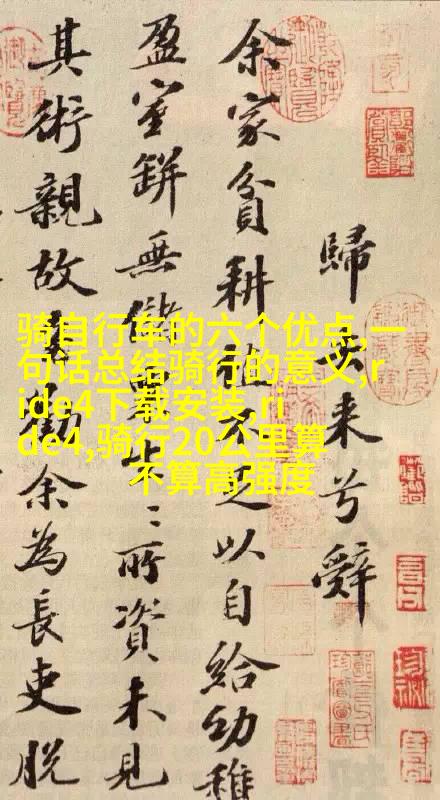 歸去来兮辭
余家貧耕植不足以自給幼稚
盈室缾無儲粟生〻所資未見
其術親故多勸余為長吏脱
骑自行车的六个优点,一
句话总结骑行的意义,r
ide4下载安装,ri
de4,骑行20公里算
不算高强度